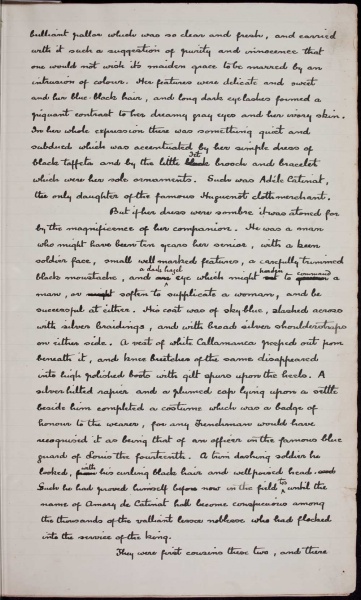 brilliant pallor which was so clear and fresh, and carried
with it such a suggestion of purity and innocence that
one would not wish it's maiden grace to be marred by an
intrusion of colour. Her features were delicate and sweet
and her blue-black hair, and long dark eyelashes formed a
piquant contrast to her dreamy gray eyes and her ivory skin.
In her whole expression there was something quiet and
subdued which was accentuated by her simple dress of
jet
black taffeta and by the little black brooch and bracelet
which were her sole ornaments. Such was Adèle Catinat,
the only daughter of the famous Huguenot cloth merchant.
But if her dress were sombre it was atoned for
by the magnificence of her companion. He was a man
who might have been ten years her senior, with a keen
soldier face, small well marked features, a carefully trimmed
a dark hazel harden command
black moustache, and eye which might to a
man, or soften to supplicate a woman, and be
successful at either. His coat was of sky blue, slashed across
with silver braidings, and with broad silver shoulderstraps
on either side. A vest of white Callamanca peeped out from
beneath it, and knee breeches of the same disappeared
into high polished boots with gilt spurs upon the heels. A
silver hilted rapier and a plumed cap lying upon a settle
beside him completed a costume which was a badge of
honour to the wearer, for any Frenchman would have
recognised it as being that of an officer in the famous blue
guard of Louis the fourteenth. A trim dashing soldier he
with
looked, his curling black hair and well poised head.
Such he had proved himself before now in the field, until the
name of Amory de Catinat had become conspicuous among
the thousands of the valliant lesser noblesse who had flocked
into the service of the king.
They were first cousins these two, and there